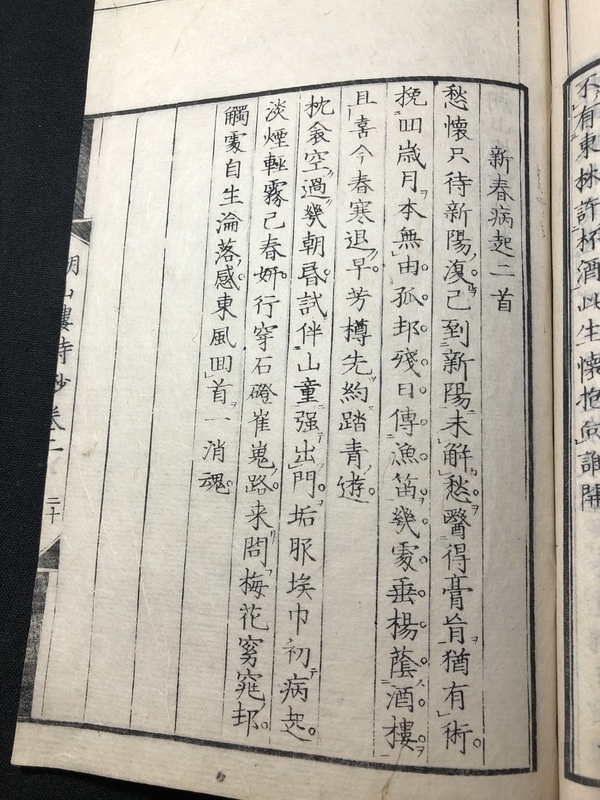 不有東林許杯酒此生懷抱向誰開
新春病起二首
愁懷只待新陽復已到新陽未解愁醫得膏肓猶有術
挽回歳月本無由孤邨殘日傳漁笛幾處垂楊蔭酒樓
且喜今春寒退早芳樽先約踏青遊
枕衾空過幾朝昏試伴山童强出門垢服埃巾初病起
淡煙輕霧已春妍行穿石磴崔嵬路来問梅花窈窕邨
觸處自生淪落感東風回首一消魂
山樓詩鈔卷二 二十